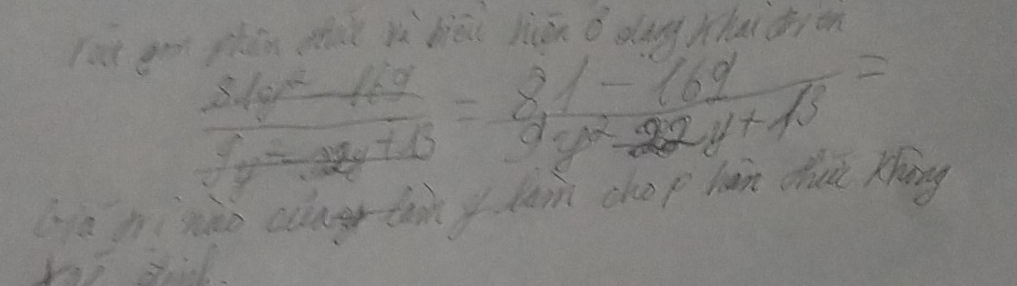 Rút gọn phân thức và biểu hiện ở dạng khai triển
81y² - 169 / 9y² - 22y + 13 = 81 - 169 / 9y² - 22y + 13 =
Giá trị nào của y làm cho phân thức không
xác định.